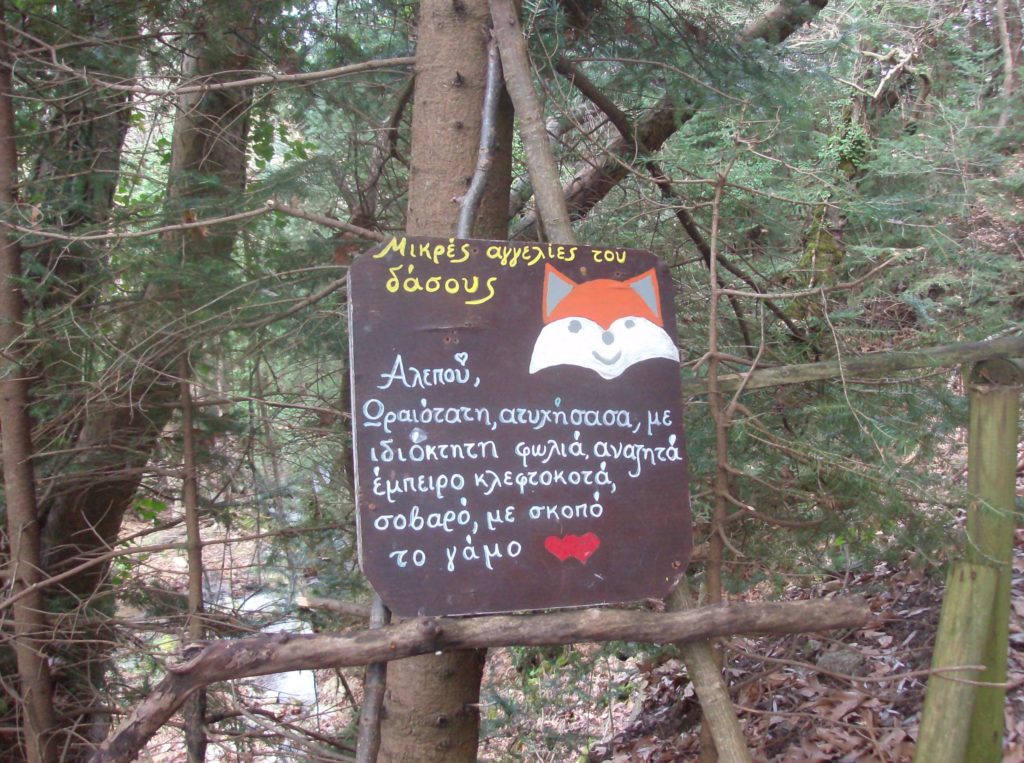 Μικρές αγγελίες του
δάσους
Αλεπού,
Ωραιότατη, ατυχήσασα, με
ιδιόκτητη φωλιά, αναζητά
έμπειρο κλεφτοκοτά,
σοβαρό, με σκοπό
το γάμο